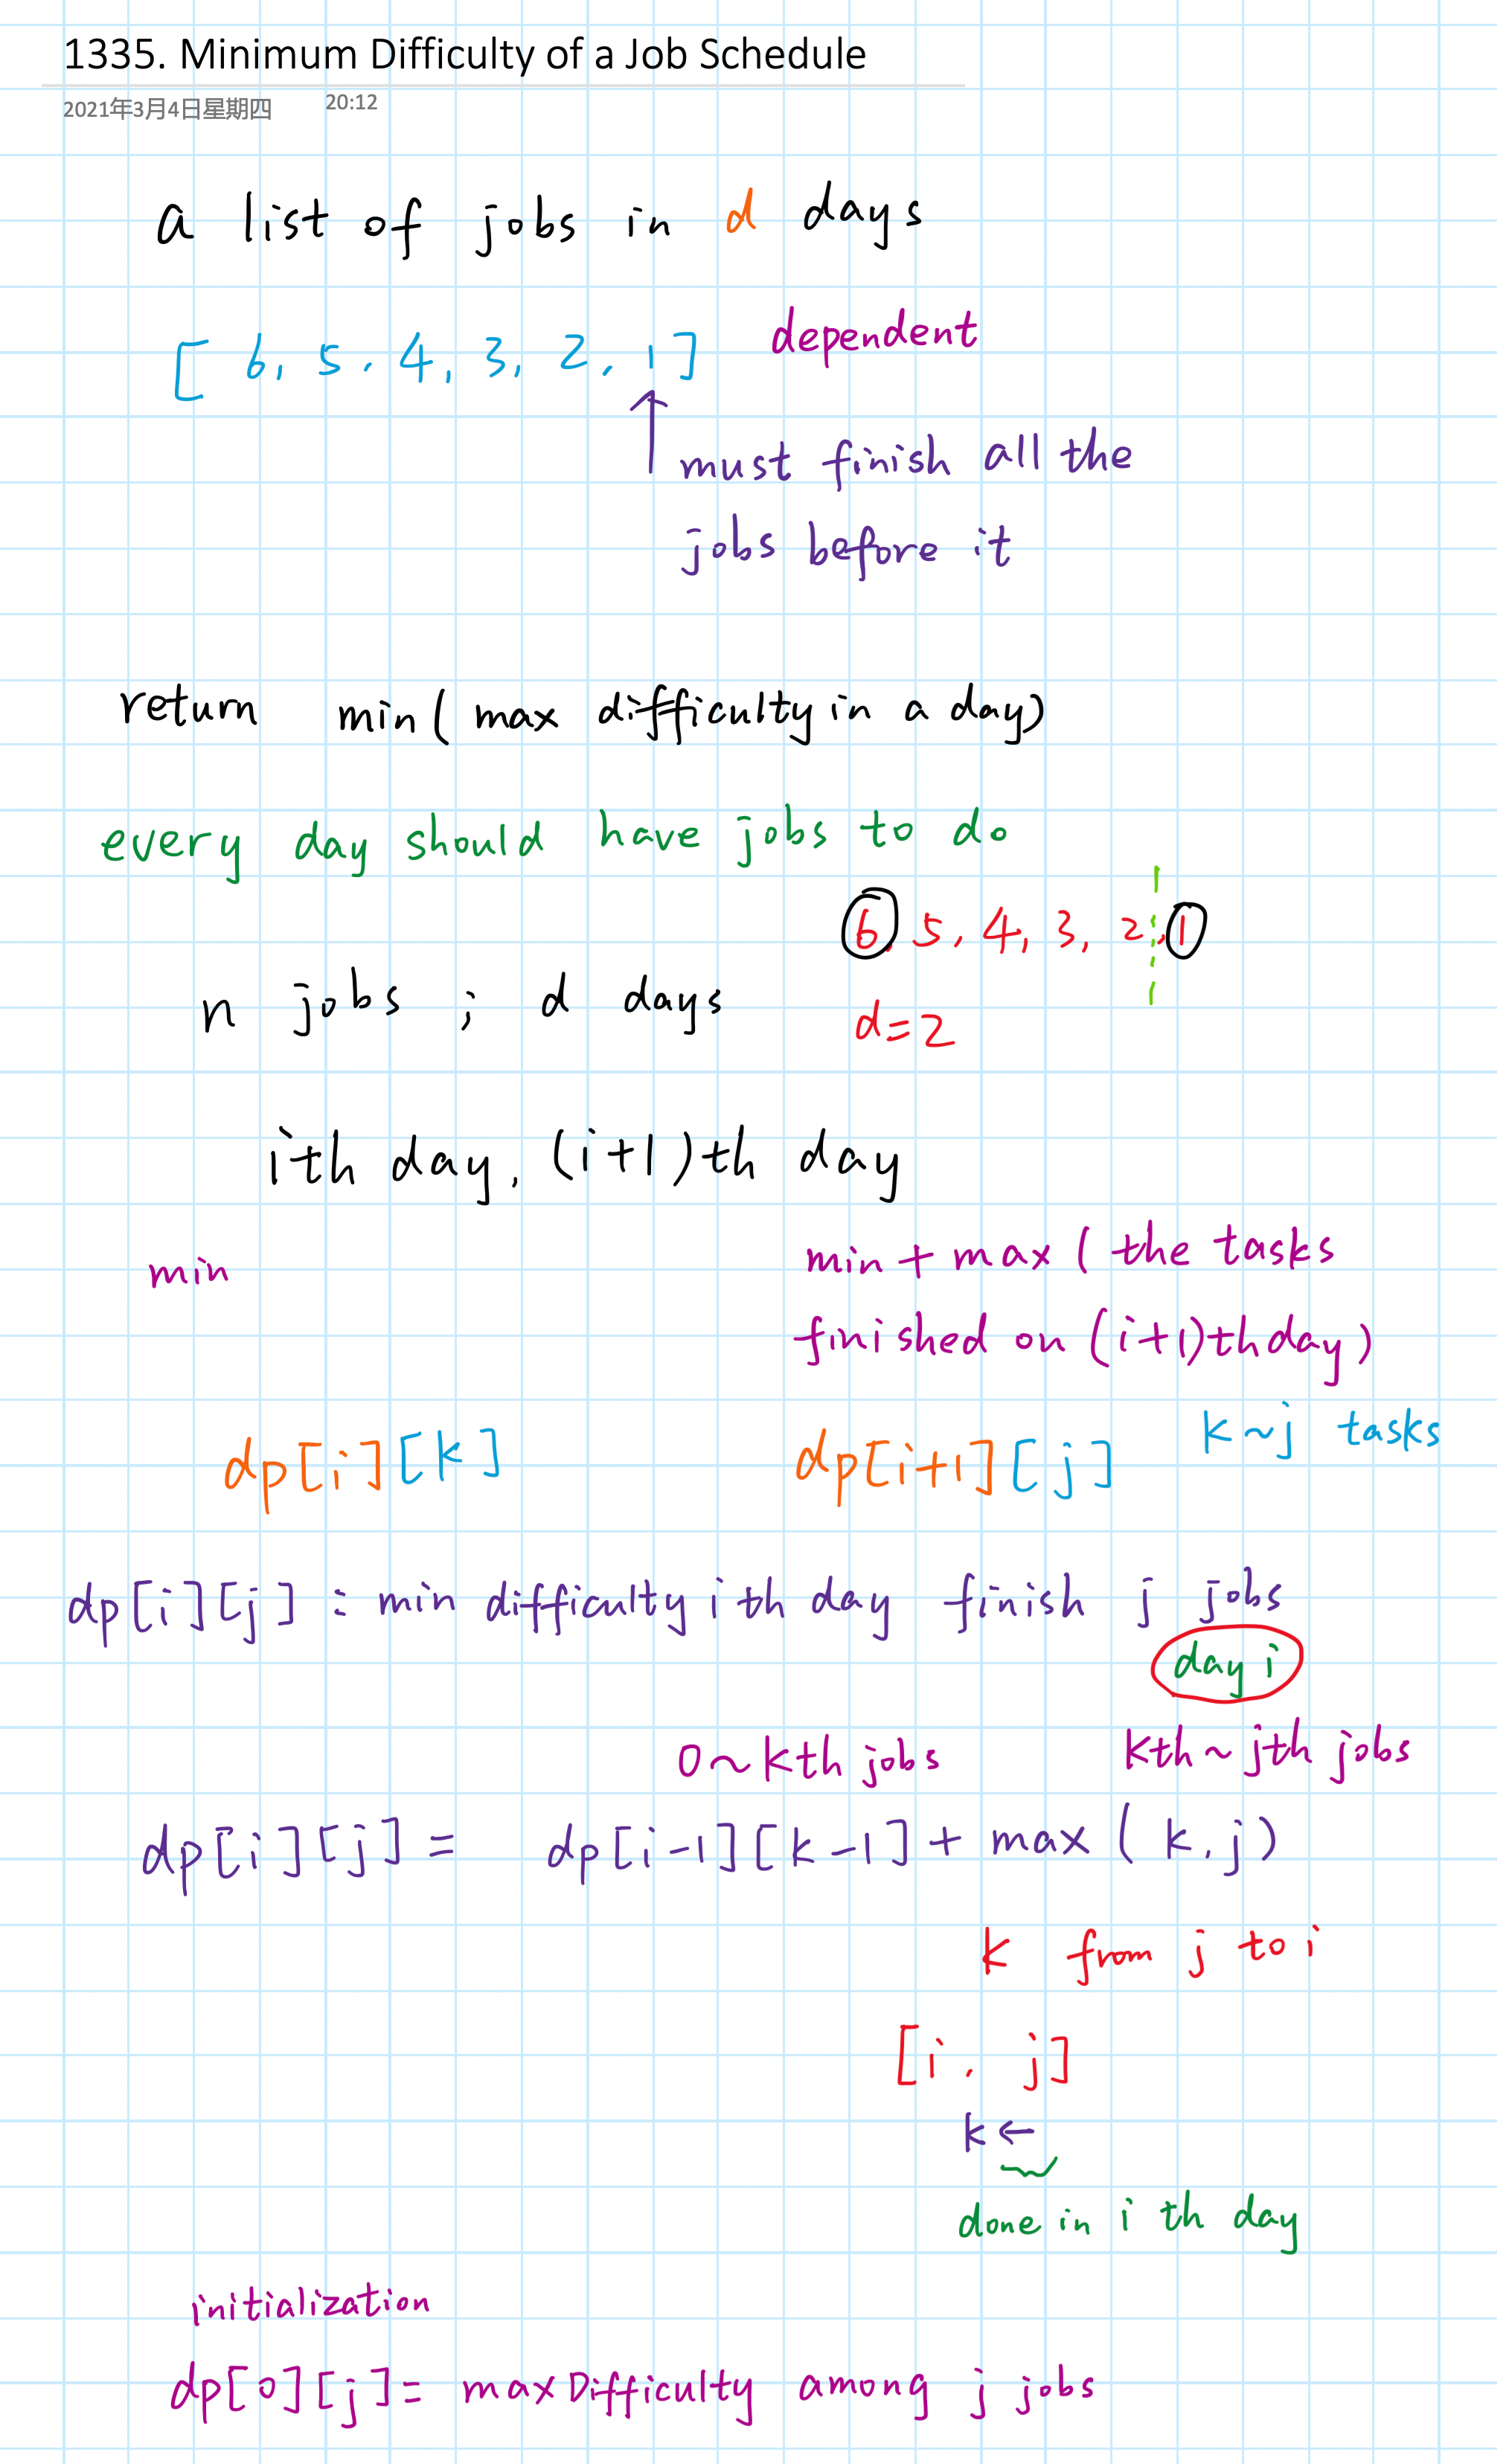 1335. Minimum Difficulty of a Job Schedule
2021年3月4日星期四 20:12
a list of jobs in d days
[ 6, 5, 4, 3, 2, 1 ] dependent
must finish all the
jobs before it
return min( max difficulty in a day)
every day should have jobs to do
6, 5, 4, 3, 2, 1
n jobs ; d days
d=2
ith day, (i+1)th day
min
min + max ( the tasks
finished on (i+1)th day)
dp[i][k] dp[i+1][j] k~j tasks
dp[i][j] : min difficulty ith day finish j jobs
day i
0~kth jobs kth~jth jobs
dp[i][j] = dp[i-1][k-1] + max ( k, j )
k from j to i
[i, j]
k ←
done in i th day
initialization
dp[0][j] = maxDifficulty among j jobs